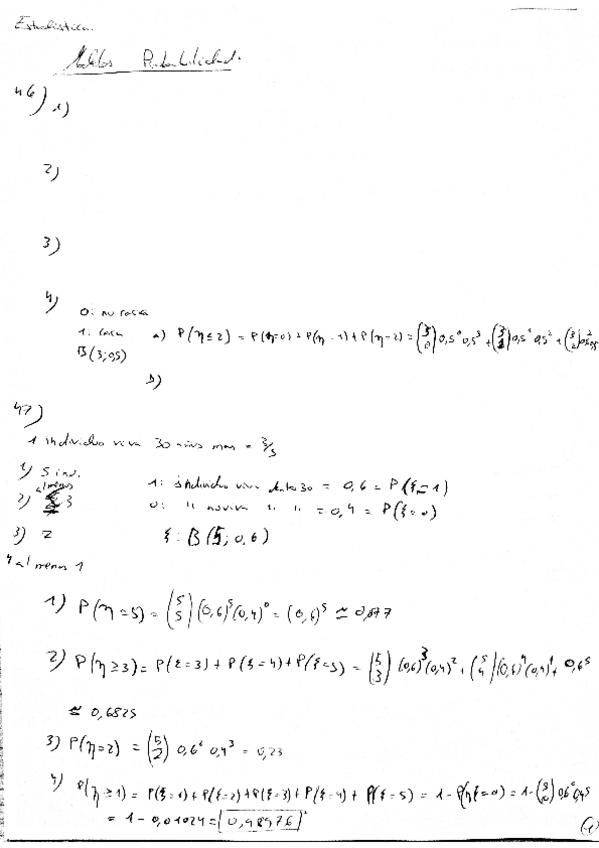 Estadística.
Modelos Probabilidad.
46) 1)
2)
3)
4) 0: no cara
1: cara a) P(η≤2) = P(η=0) + P(η=1) + P(η=2) = (3 0) 0,5⁰ 0,5³ + (3 1) 0,5¹ 0,5² + (3 2) 0,5²
B(3; 0,5)
b)
47)
1 individuo viva 30 años mas = 3/5
1) 5 ind. 1: individuo viva = 0,6 = P(ξ=1)
2) al menos 3 0: " no viva " " = 0,4 = P(ξ=0)
3) 2 ξ: B(5; 0,6)
4 al menos 1
1) P(η=5) = (5 5) (0,6)⁵ (0,4)⁰ = (0,6)⁵ ≃ 0,077
2) P(η≥3) = P(ξ=3) + P(ξ=4) + P(ξ=5) = (5 3) (0,6)³ (0,4)² + (5 4) (0,6)⁴ (0,4)¹ + 0,6⁵
≃ 0,6825
3) P(η=2) = (5 2) 0,6² 0,4³ = 0,23
4) P(η≥1) = P(ξ=1) + P(ξ=2) + P(ξ=3) + P(ξ=4) + P(ξ=5) = 1 - P(ξ=0) = 1 - (5 0) 0,6⁰ 0,4⁵
= 1 - 0,01024 = 0,98976
1